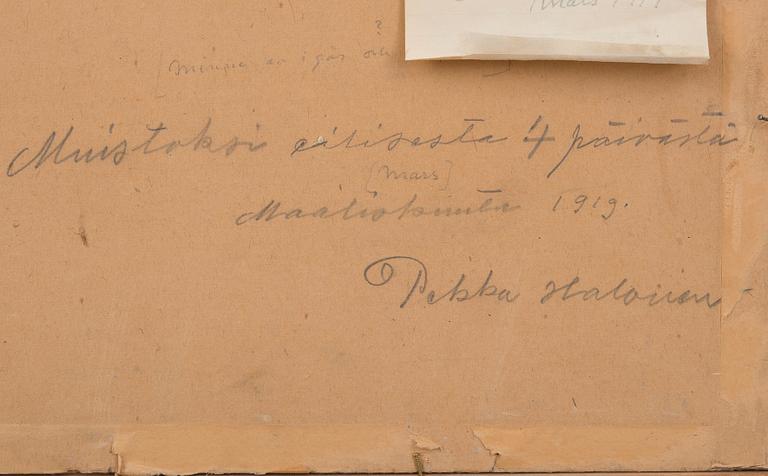 Mars 1919
?
[Minne av i går och
]
Muistoksi eilisestä 4 päivästä
[Mars]
Maaliskuuta 1919.
Pekka Halonen